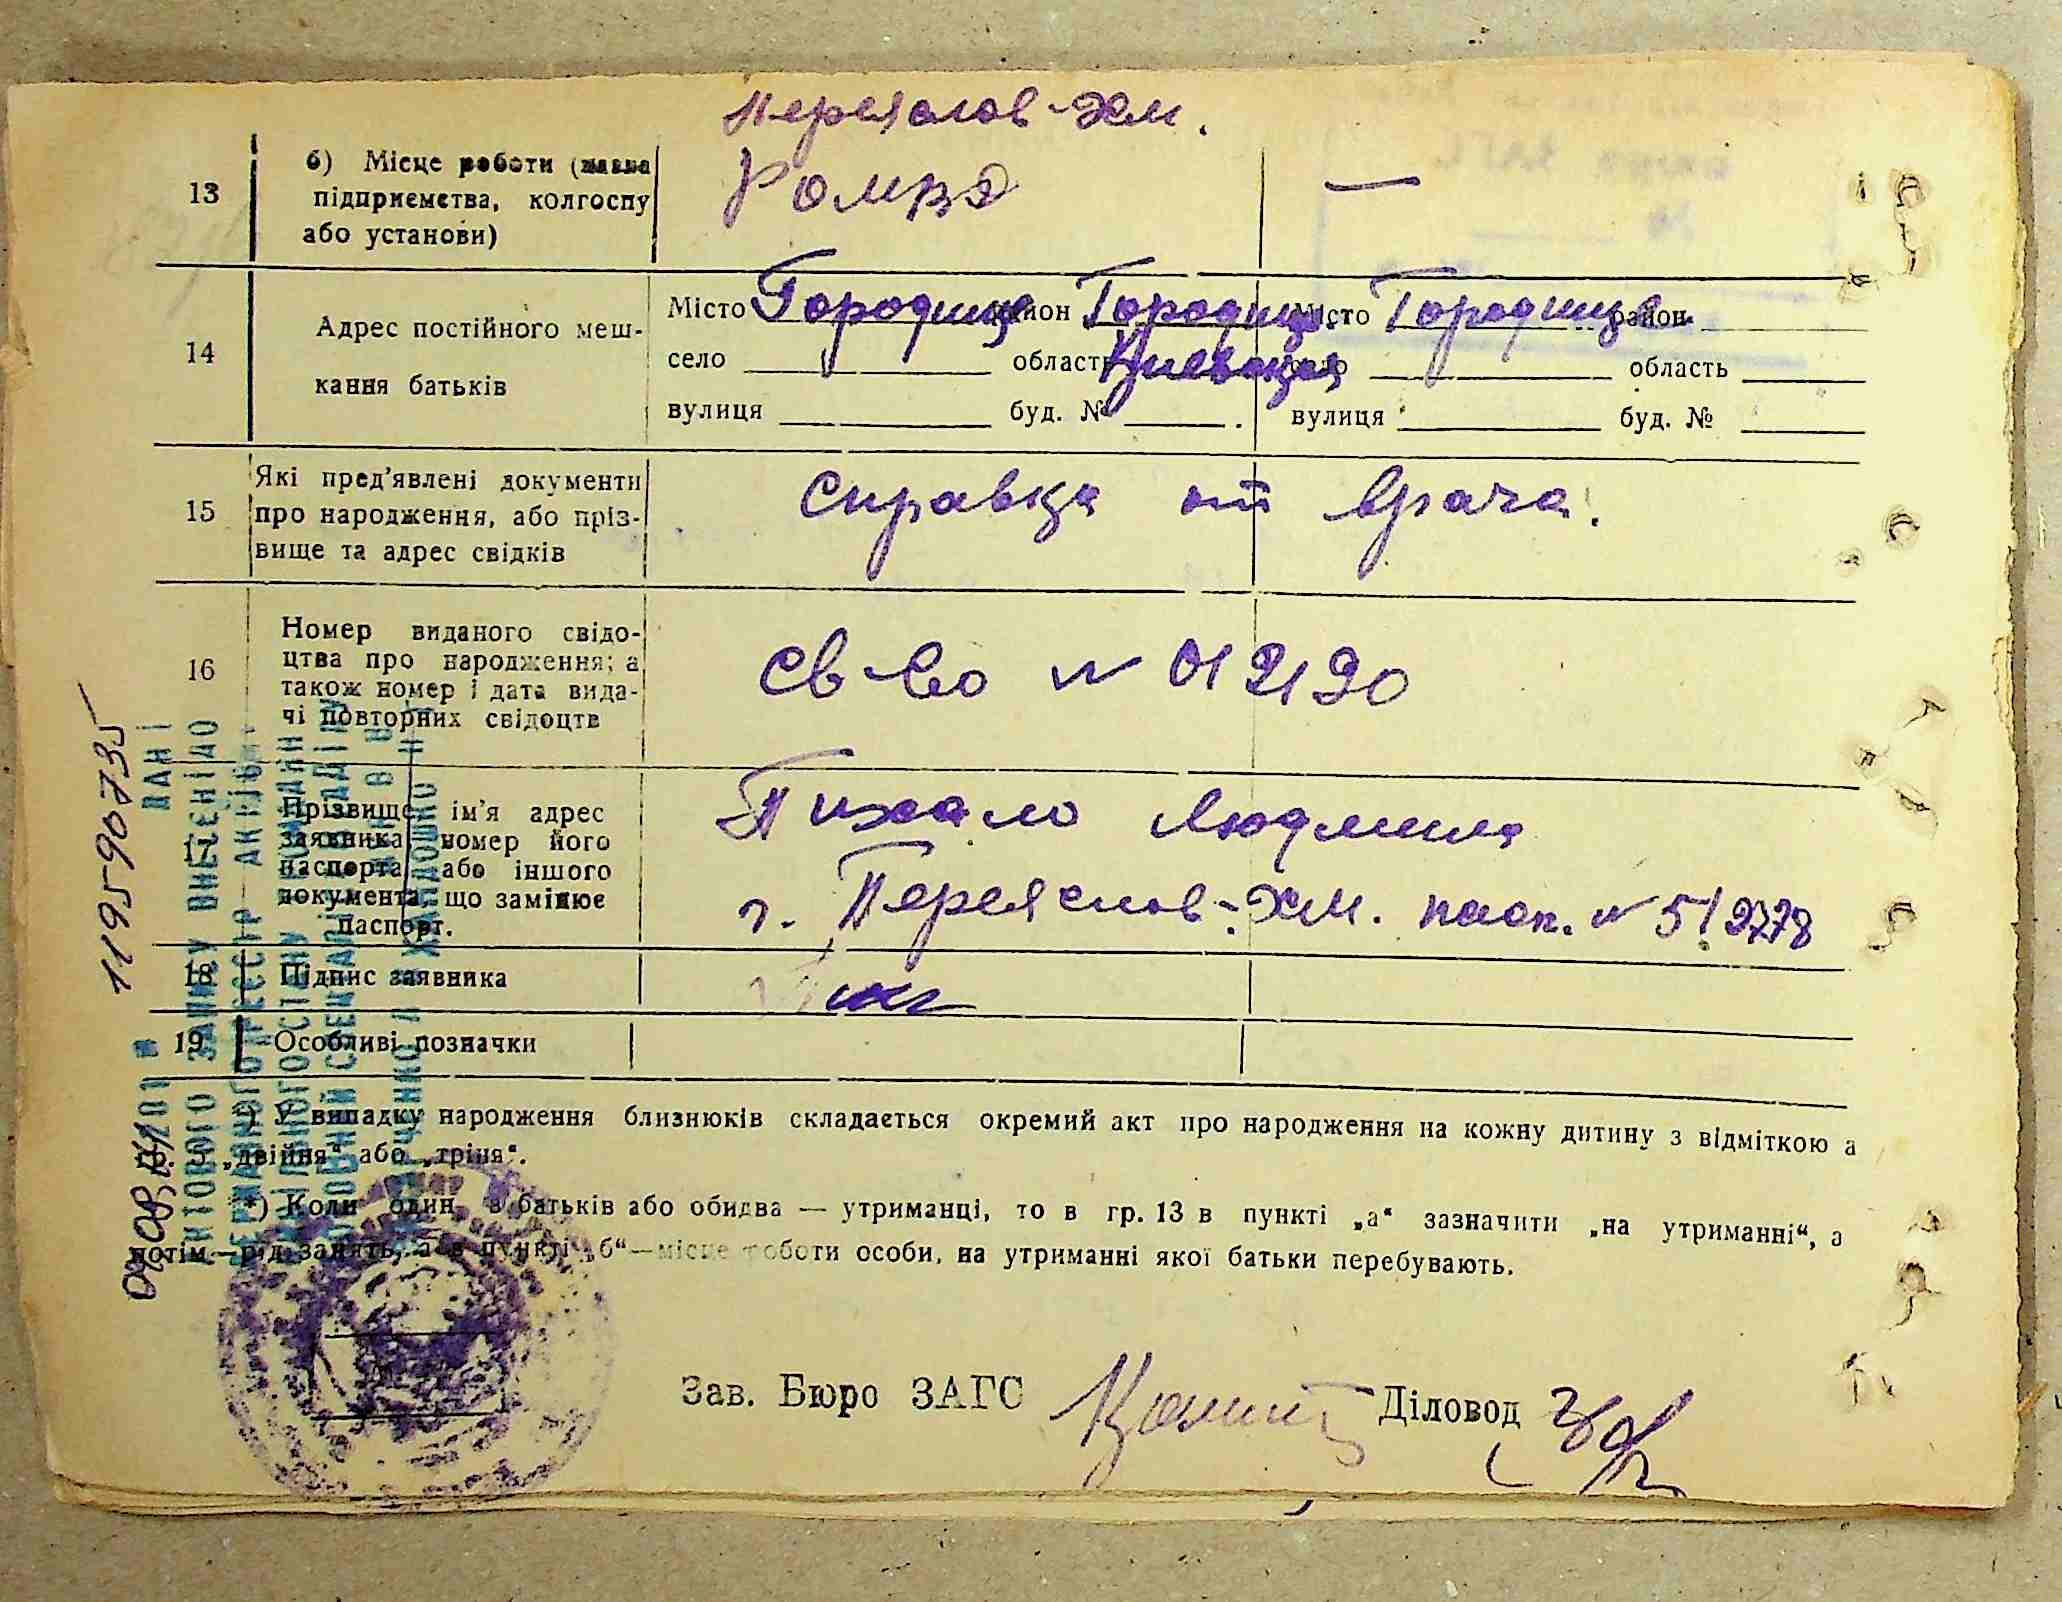 Переяслов-Хм.
13
б) Місце роботи (назва
підприємства, колгоспу
або установи)
—
14
Адрес постійного меш-
кання батьків
Місто Городище район Городищ.
село область Киевская
вулиця буд. №
Місто Городище район
село область
вулиця буд. №
15
Які пред'явлені документи
про народження, або пріз-
вище та адрес свідків
Справка от врача.
16
Номер виданого свідо-
цтва про народження; а
також номер і дата вида-
чі повторних свідоцтв
Св-во № 012120
17
Прізвище, ім'я адрес
заявника, номер його
паспорта, або іншого
документа, що замінює
паспорт.
Пихало Людмила
г. Переяслов-Хм. пасп. № 512778
18
Підпис заявника
19
Особливі позначки
*) У випадку народження близнюків складається окремий акт про народження на кожну дитину з відміткою а
гр. 5 „двійня“ або „трійня“.
*) Коли один з батьків або обидва — утриманці, то в гр. 13 в пункті „а“ зазначити „на утриманні“, а
потім—рід занять, а в пункті „б“—місце роботи особи, на утриманні якої батьки перебувають.
Зав. Бюро ЗАГС
Діловод
119590735
ДАНІ
АКТОВОГО ЗАПИСУ ВНЕСЕНІДО
ДЕРЖАВНОГО РЕЄСТР